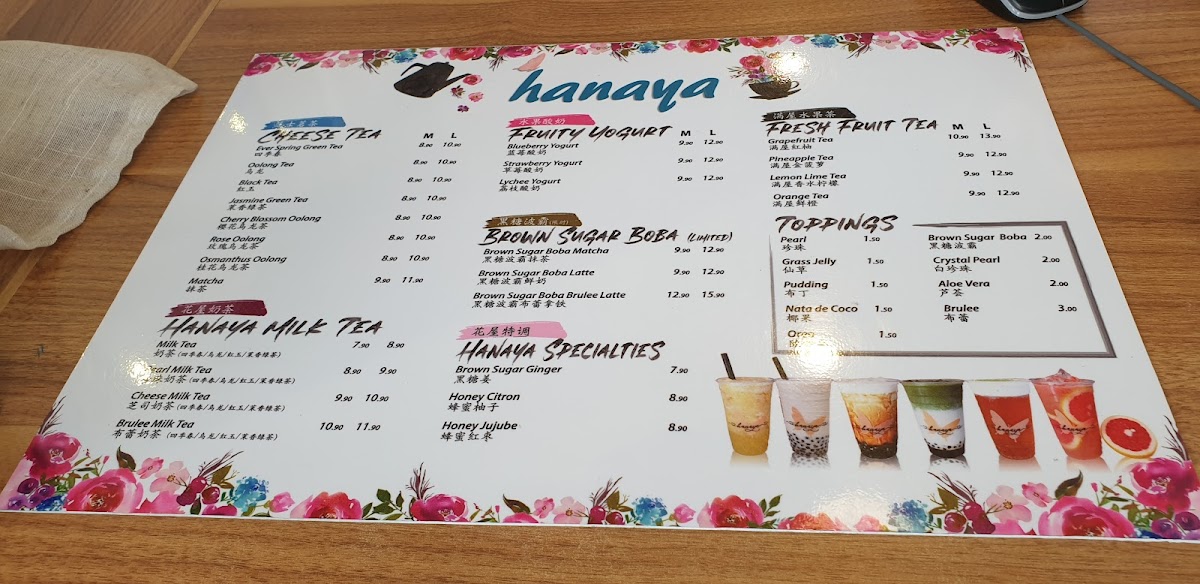 hanaya
芝士茗茶
CHEESE TEA M L
Ever Spring Green Tea 8.90 10.90
四季春
Oolong Tea 8.90 10.90
乌龙
Black Tea 8.90 10.90
红玉
Jasmine Green Tea 8.90 10.90
茉香绿茶
Cherry Blossom Oolong 8.90 10.90
樱花乌龙茶
Rose Oolong 8.90 10.90
玫瑰乌龙茶
Osmanthus Oolong 8.90 10.90
桂花乌龙茶
Matcha 9.90 11.90
抹茶
花屋奶茶
HANAYA MILK TEA
Milk Tea 7.90 8.90
奶茶 (四季春/乌龙/红玉/茉香绿茶)
Pearl Milk Tea 8.90 9.90
珍珠奶茶 (四季春/乌龙/红玉/茉香绿茶)
Cheese Milk Tea 9.90 10.90
芝司奶茶 (四季春/乌龙/红玉/茉香绿茶)
Brulee Milk Tea 10.90 11.90
布蕾奶茶 (四季春/乌龙/红玉/茉香绿茶)
水果酸奶
FRUITY YOGURT M L
Blueberry Yogurt 9.90 12.90
蓝莓酸奶
Strawberry Yogurt 9.90 12.90
草莓酸奶
Lychee Yogurt 9.90 12.90
荔枝酸奶
黑糖波霸
BROWN SUGAR BOBA (LIMITED)
Brown Sugar Boba Matcha 9.90 12.90
黑糖波霸抹茶
Brown Sugar Boba Latte 9.90 12.90
黑糖波霸鲜奶
Brown Sugar Boba Brulee Latte 12.90 15.90
黑糖波霸布蕾拿铁
花屋特调
HANAYA SPECIALTIES
Brown Sugar Ginger 7.90
黑糖姜
Honey Citron 8.90
蜂蜜柚子
Honey Jujube 8.90
蜂蜜红枣
满屋水果茶
FRESH FRUIT TEA M L
Grapefruit Tea 10.90 13.90
满屋红柚
Pineapple Tea 9.90 12.90
满屋金菠萝
Lemon Lime Tea 9.90 12.90
满屋香水柠檬
Orange Tea 9.90 12.90
满屋鲜橙
TOPPINGS
Pearl 1.50
珍珠
Grass Jelly 1.50
仙草
Pudding 1.50
布丁
Nata de Coco 1.50
椰果
Oreo 1.50
Brown Sugar Boba 2.00
黑糖波霸
Crystal Pearl 2.00
白珍珠
Aloe Vera 2.00
芦荟
Brulee 3.00
布蕾